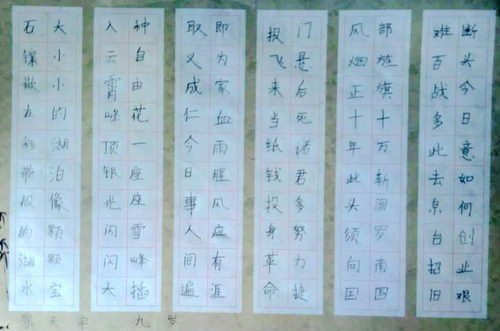 断头今日意如何创业艰
难百战多此去泉台招旧
部旌旗十万斩阎罗南国
风烟正十年此头须向国
门悬后死诸君多努力捷
报飞来当纸钱投身革命
即为家血雨腥风应有涯
取义成仁今日事人间遍
种自由花一座座雪峰插
入云霄峰顶银光闪闪大
大小小的湖泊像颗颗宝
石镶嵌在彩带般的湖水
九岁